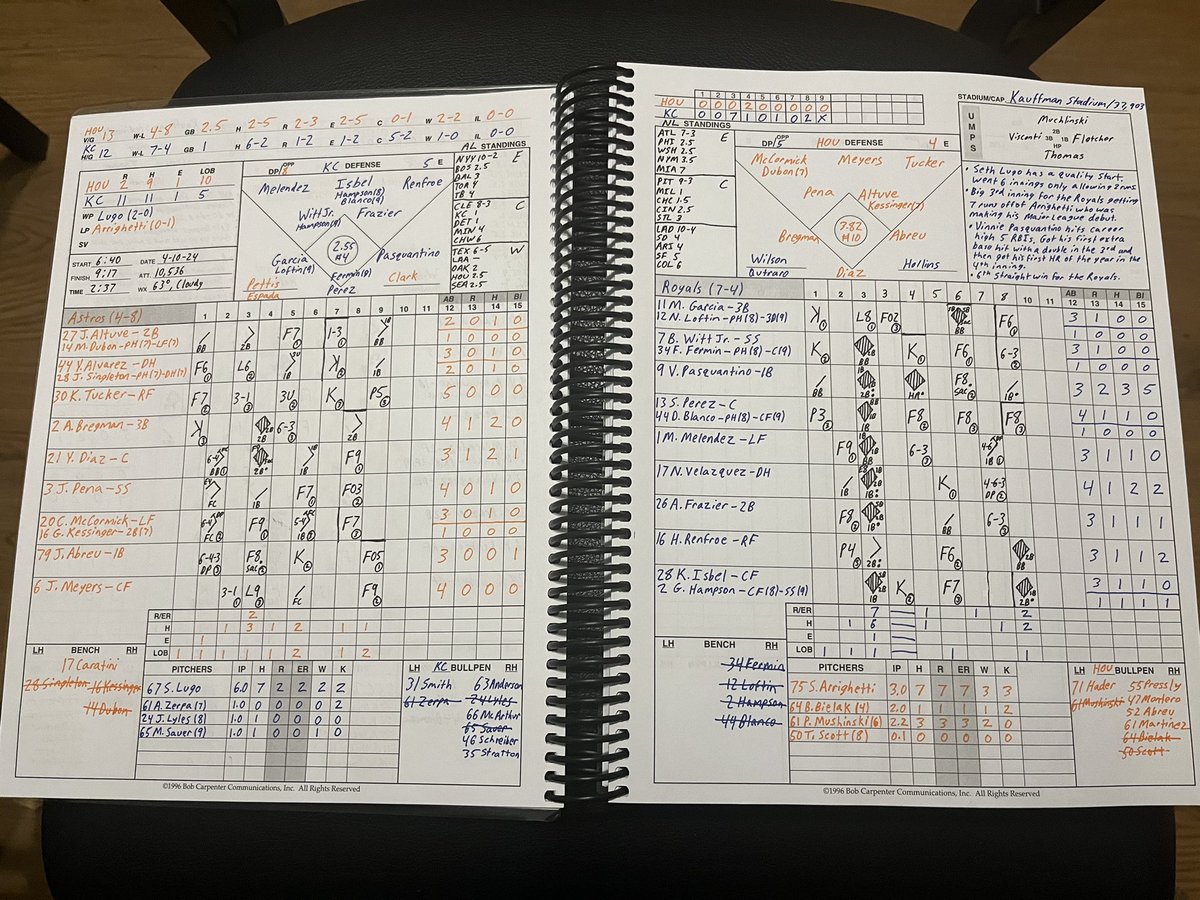 HOU V/G 13 W-L 4-8 GB 2.5 H 2-5 R 2-3 E 2-5 C 0-1 W 2-2 IL 0-0
KC H/G 12 W-L 7-4 GB 1 H 6-2 R 1-2 E 1-2 C 5-2 W 1-0 IL 0-0
R H E LOB
HOU 2 9 1 10
KC 11 11 5
WP Lugo (2-0)
LP Arrighetti (0-1)
SV
START 6:40 DATE 4-10-24
FINISH 9:17 ATT. 10,536
TIME 2:37 WX 63°, Cloudy
DP/OPP KC DEFENSE 5 E
Melendez
Isbel
Hampson(8)
Blanco(9)
Renfroe
Witt Jr.
Hampson(9)
Frazier
Garcia
Loftin(9)
2.55
#1
Pasquantino
Fermin(9)
Perez
Pettis
Espada
Clark
AL STANDINGS
NYY 10-2 E
BOS 2.5
BAL 3
TOR 4
TB 4
CLE 8-3 C
KC 1
DET 1
MIN 4
CHW 6
TEX 6-5 W
LAA -
OAK 2
HOU 2.5
SEA 2.5
Astros (4-8) 1 2 3 4 5 6 7 8 9 10 11 AB 12 R 13 H 14 BI 15
27 J. Altuve-2B 2 0 1 0
14 M. Dubon-PH(7)-LF(7) 1 0 0 0
44 Y. Alvarez-DH 3 0 1 0
28 J. Singleton-PH(7)-DH(7) 2 0 1 0
30 K. Tucker-RF F7 3-1 3U K P5 5 0 0 0
2 A. Bregman-3B 6-3 4 1 2 0
21 Y. Diaz-C F9 3 1 2 1
3 J. Pena-SS F7 FO3 4 0 1 0
20 C. McCormick-LF F9 F7 3 0 1 0
16 G. Kessinger-2B(7) 1 0 0 0
79 J. Abreu-1B 6-4-3 DP F8 SAC K FO5 3 0 0 1
6 J. Meyers-CF 3-1 L9 FC F9 4 0 0 0
R/ER 2
H 1 3 1 2 1 1
E 1
LOB 1 1 1 1 1 2 1 2
LH BENCH RH
17 Caratini
28 Singleton 16 Kessinger
14 Dubon
PITCHERS IP H R ER W K
67 S. Lugo 6.0 7 2 2 2 2
61 A. Zerpa (7) 1.0 0 0 0 0 2
24 J. Lyles (8) 1.0 1 0 0 0 0
65 M. Sauer (9) 1.0 1 0 0 1 0
LH KC BULLPEN RH
31 Smith 63 Anderson
61 Zerpa 24 Lyles
66 McArthur
65 Sauer
46 Schreiber
35 Stratton
©1996 Bob Carpenter Communications, Inc. All Rights Reserved
1 2 3 4 5 6 7 8 9
HOU 0 0 0 2 0 0 0 0 0
KC 0 0 7 1 0 1 0 2 X
NL STANDINGS
ATL 7-3 E
PHI 2.5
WSH 2.5
NYM 3.5
MIA 7
PIT 9-3 C
MIL 1
CHC 1.5
CIN 2.5
STL 3
LAD 10-4 W
SD 4
ARI 4
SF 5
COL 6
DP/OPP HOU DEFENSE 4 E
McCormick
Dubon(7)
Meyers
Tucker
Pena
Altuve
Kessinger(7)
Bregman
7.82
#10
Abreu
Diaz
Wilson
Butraro
Hollins
STADIUM/CAP. Kauffman Stadium/37,903
UMPS
Muchlinski
2B
Visconti 3B 1B Fletcher
HP
Thomas
• Seth Lugo has a quality start.
Went 6 innings only allowing 2 runs
• Big 3rd inning for the Royals getting
7 runs off of Arrighetti who was
making his Major League debut.
• Vinnie Pasquantino hits career
high 5 RBIs. Got his first extra
base hit with a double in the 3rd and
then got his first HR of the year in the
4th inning.
• 6th straight win for the Royals.
Royals (7-4) 1 2 3 4 5 6 7 8 9 10 11 AB 12 R 13 H 14 BI 15
11 M. Garcia-3B 3 1 0 0
12 N. Loftin-PH(8)-3B(9) 1 0 0 0
7 B. Witt Jr.-SS 3 1 0 0
34 F. Fermin-PH(8)-C(9) 1 0 0 0
9 V. Pasquantino-1B 3 2 3 5
13 S. Perez-C 4 1 1 0
44 D. Blanco-PH(8)-CF(9) 1 0 0 0
1 M. Melendez-LF 3 1 1 0
17 N. Velazquez-DH 4 1 2 2
26 A. Frazier-2B 3 1 1 1
16 H. Renfroe-RF 3 1 1 2
28 K. Isbel-CF 3 1 1 0
2 G. Hampson-CF(8)-SS(9) 1 1 1 1
R/ER 7 1 1 2
H 1 6 1 1 2
E 1
LOB 1 1 1 1 1
LH BENCH RH
34 Fermin
12 Loftin
2 Hampson
44 Blanco
PITCHERS IP H R ER W K
75 S. Arrighetti 3.0 7 7 7 3 3
64 B. Bielak (4) 2.0 1 1 1 1 2
61 P. Mushinski (6) 2.2 3 3 3 2 0
50 T. Scott (8) 0.1 0 0 0 0 0
LH HOU BULLPEN RH
71 Hader 55 Pressly
61 Mushinski 47 Montero
52 Abreu
61 Martinez
64 Bielak
50 Scott
©1996 Bob Carpenter Communications, Inc. All Rights Reserved